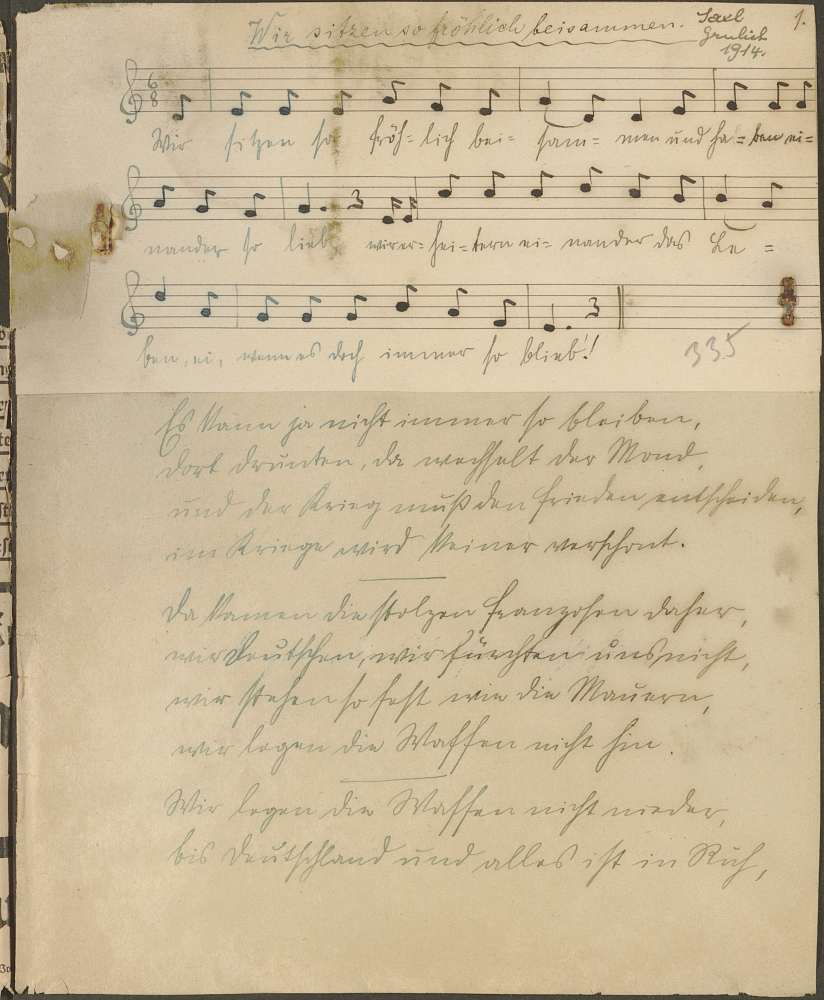 Wir sitzen so fröhlich beisammen.
1.
1914.
Wir sitzen so fröh- lich bei- sam- men und ha- ben ei-
nander so lieb wir er- hei- tern ei- nander das Le-
ben, ei, wenn es doch immer so blieb!
335
Es kann ja nicht immer so bleiben,
dort drunten, da wechselt der Mond,
und der Krieg muß den Frieden entscheiden,
im Kriege wird keiner verschont.
Da kamen die stolzen Franzosen daher,
wir Deutschen, wir fürchten uns nicht,
wir stehen so fest wie die Mauern,
wir legen die Waffen nicht hin.
Wir legen die Waffen nicht nieder,
bis Deutschland und alles ist in Ruh,